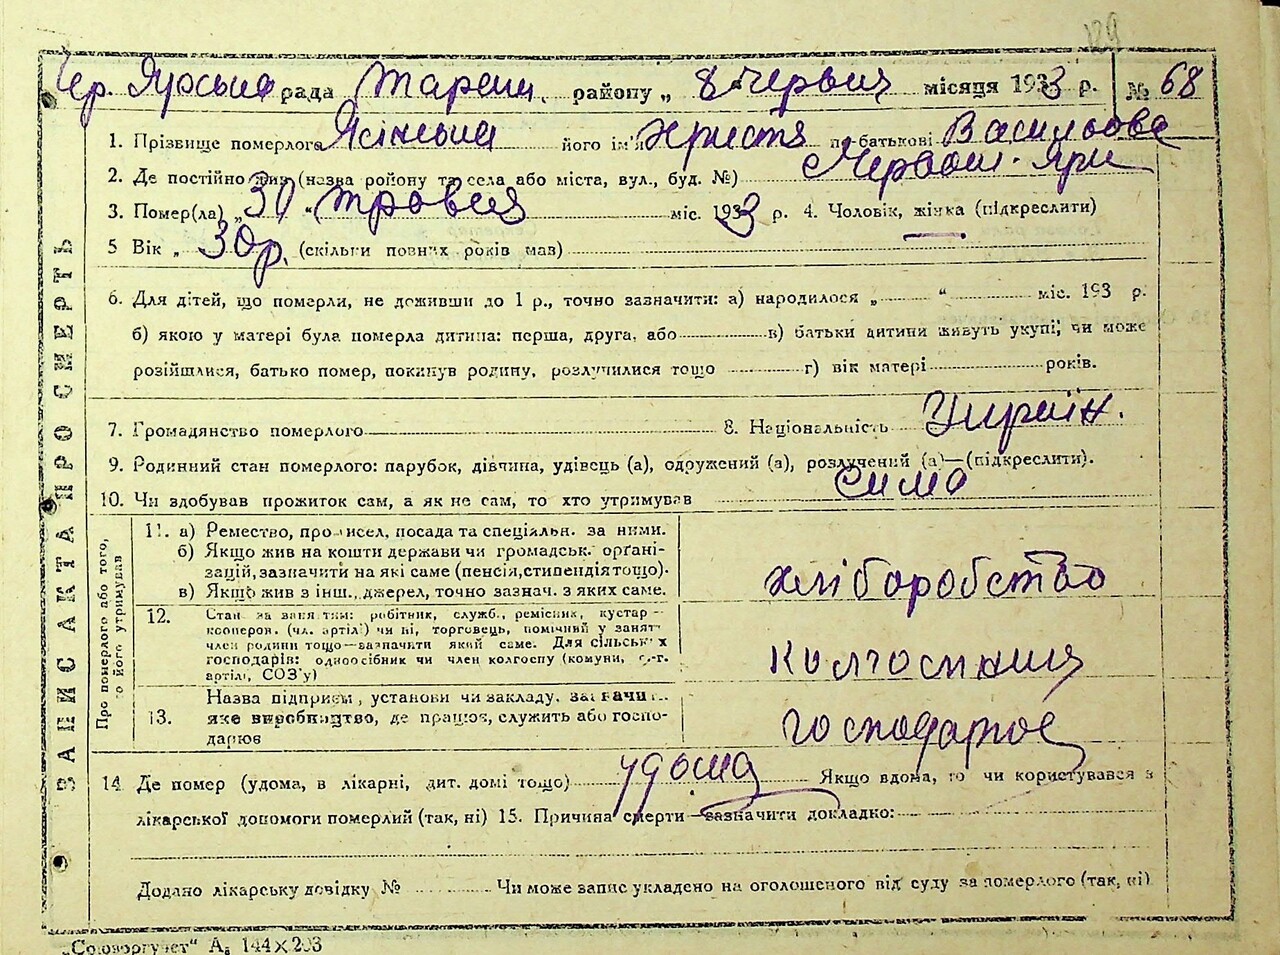 129
Чер. Ярська рада Таращ. району „ 8 " червня місяця 1933 р. № 68
1. Прізвище померлого Ясінська його ім'я Христя по батькові Васильова
2. Де постійно жив (назва району та села або міста, вул., буд. №) Червон. Яри
3. Помер(ла) „ 30 " травня міс. 1933 р. 4. Чоловік, жінка (підкреслити)
5 Вік „ 30 р. (скільки повних років мав)
6. Для дітей, що померли, не доживши до 1 р., точно зазначити: а) народилося „ “ міс. 193 р.
б) якою у матері була померла дитина: перша, друга, або в) батьки дитини живуть укупі, чи може
розійшлися, батько помер, покинув родину, розлучилися тощо г) вік матері років.
7. Громадянство померлого 8. Національність Україн.
9. Родинний стан померлого: парубок, дівчина, удівець (а), одружений (а), розлучений (а)—(підкреслити).
10. Чи здобував прожиток сам, а як не сам, то хто утримував сама
ЗАПИСКА ПРО СМЕРТЬ
Про померлого або того, хто його утримував
11. а) Ремество, промисел, посада та спеціальн. за ними.
б) Якщо жив на кошти держави чи громадськ. орґані-
зацій, зазначити на які саме (пенсія, стипендія тощо).
в) Якщо жив з інш. джерел, точно зазнач. з яких саме.
хліборобство
12. Стан за заняттям: робітник, служб., ремісник, кустар —
кооперов. (чл. артілі) чи ні, торговець, помічний у занят.
член родини тощо—зазначити який саме. Для сільських
господарів: одноосібник чи член колгоспу (комуни, с.-г.
артілі, СОЗ'у)
колгоспниця
13. Назва підприєм., установи чи закладу, зазначити
яке виробництво, де працює, служить або госпо-
дарює
господарює
14 Де помер (удома, в лікарні, дит. домі тощо) удома Якщо вдома, то чи користувався з
лікарської допомоги померлий (так, ні) 15. Причина смерти—зазначити докладно:
Додано лікарську довідку № Чи може запис укладено на оголошеного від суду за померлого (так, ні)
„Союзоргучет“ А₅ 144×203